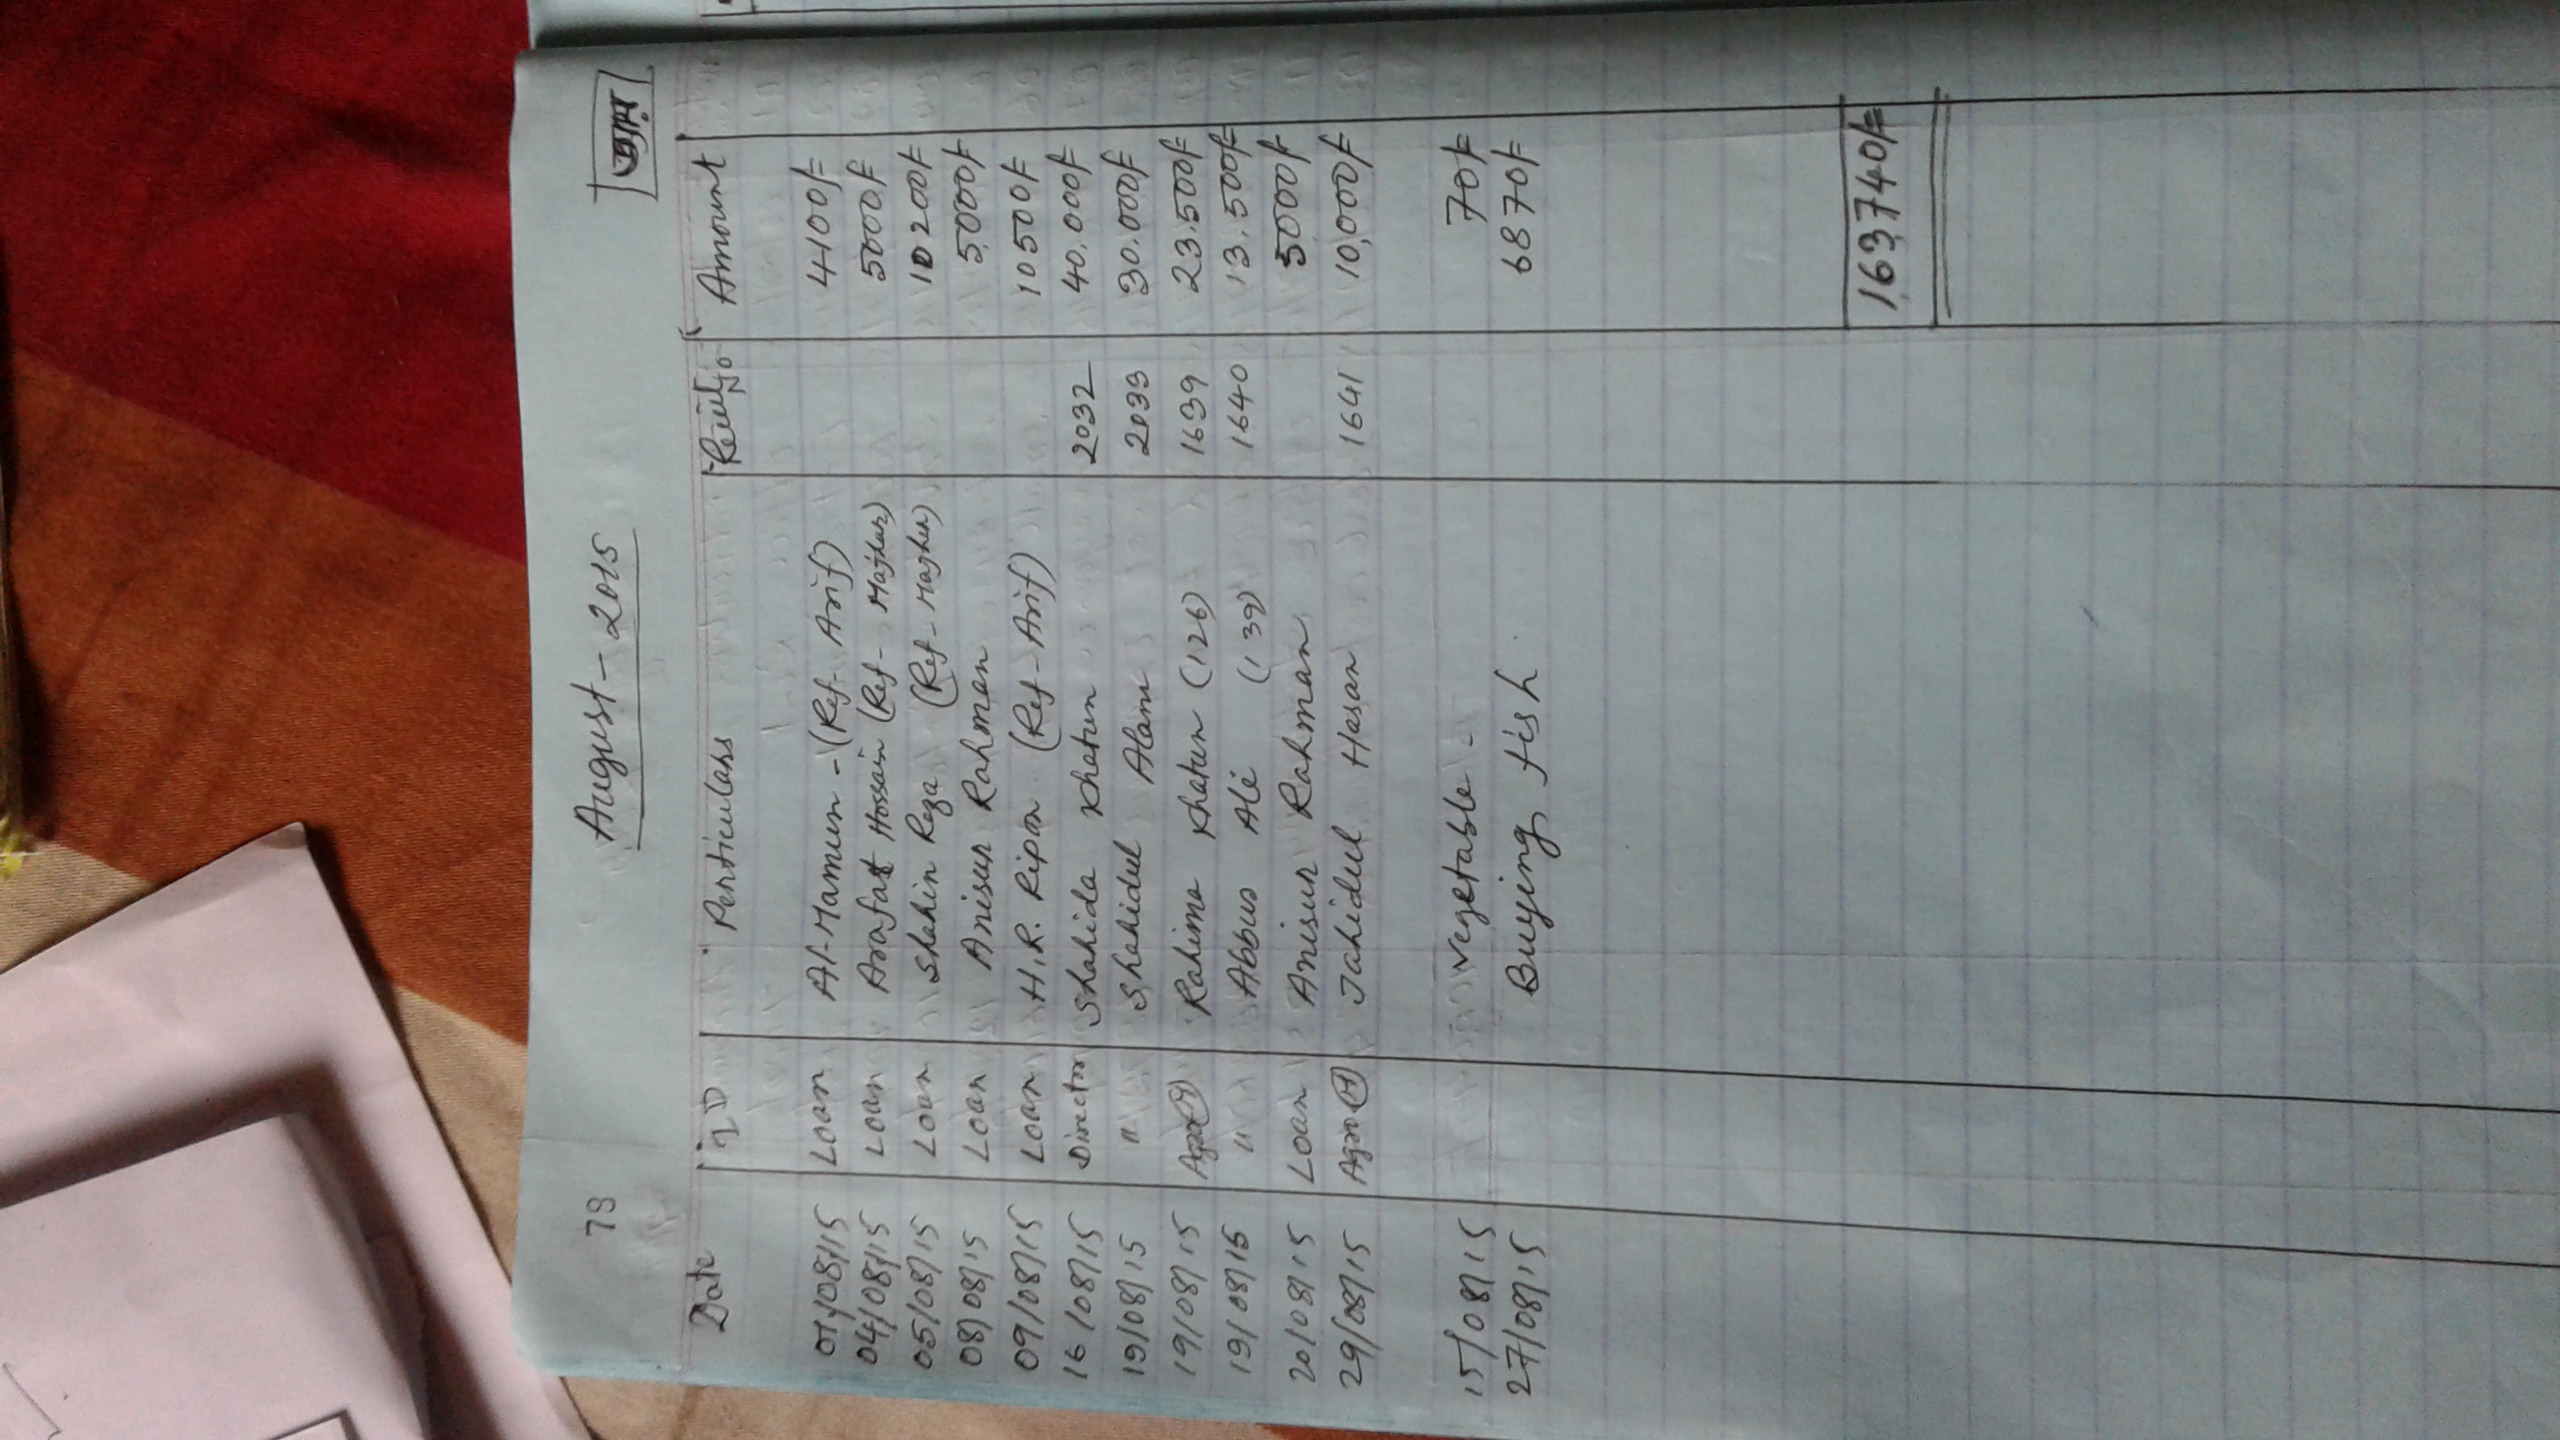 73
August - 2015
আয়
Date ID Perticulars Receit No Amount
01/08/15 Loan Al-Mamun - (Ref- Arif) 4100/=
04/08/15 Loan Arafat Hossain (Ref- Majhar) 5000/=
05/08/15 Loan Shahin Reza (Ref- Majher) 10200/=
08/08/15 Loan Anisur Rahman 5000/=
09/08/15 Loan H.R. Ripon (Ref- Arif) 10500/=
16/08/15 Director Shahida Khatun 2032 40,000/=
19/08/15 " Shahidul Alam 2033 30.000/=
19/08/15 Agro (M) Rahima Khatun (126) 1639 23.500/=
19/08/15 " Abbus Ali (139) 1640 13.500/=
20/08/15 Loan Anisur Rahman 5000/=
29/08/15 Agro (M) Jahidul Hasan 1641 10,000/=
15/08/15 Vegetable - 70/=
27/08/15 Buying fish 6870/=
1,63,740/=